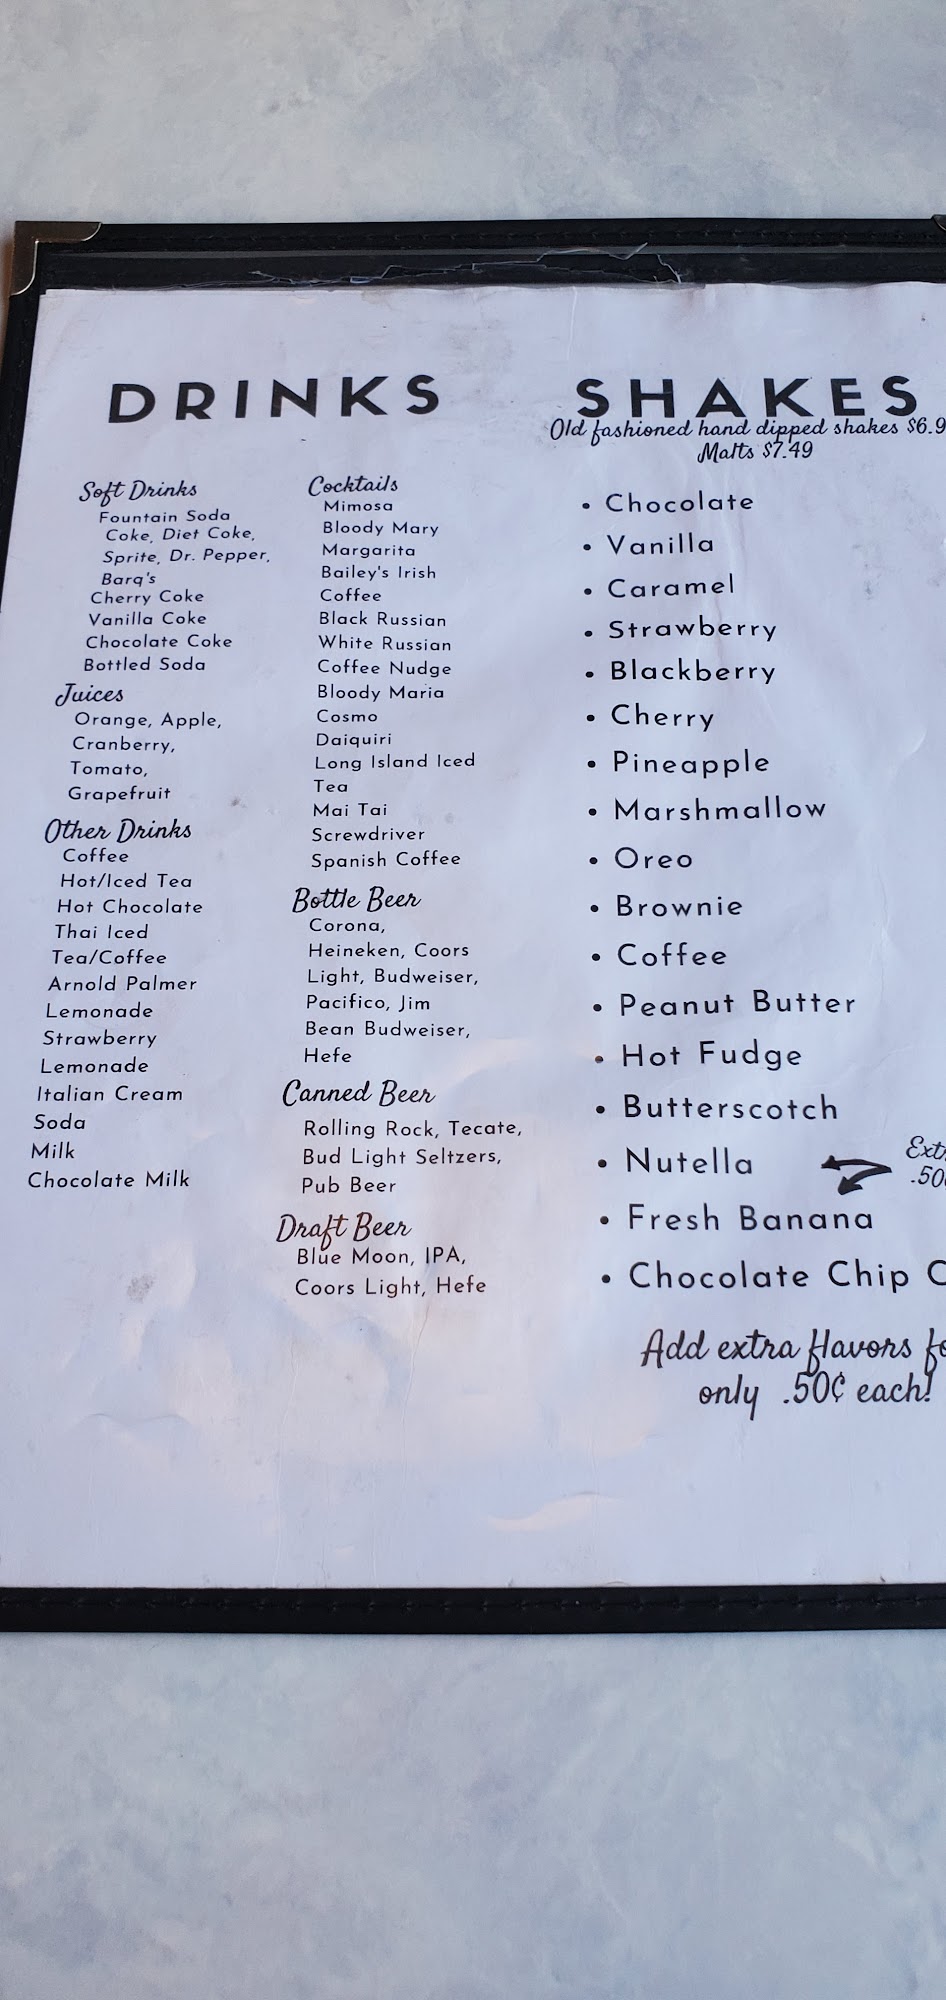 DRINKS
Soft Drinks
Fountain Soda
Coke, Diet Coke,
Sprite, Dr. Pepper,
Barq's
Cherry Coke
Vanilla Coke
Chocolate Coke
Bottled Soda
Juices
Orange, Apple,
Cranberry,
Tomato,
Grapefruit
Other Drinks
Coffee
Hot/Iced Tea
Hot Chocolate
Thai Iced
Tea/Coffee
Arnold Palmer
Lemonade
Strawberry
Lemonade
Italian Cream
Soda
Milk
Chocolate Milk
Cocktails
Mimosa
Bloody Mary
Margarita
Bailey's Irish
Coffee
Black Russian
White Russian
Coffee Nudge
Bloody Maria
Cosmo
Daiquiri
Long Island Iced
Tea
Mai Tai
Screwdriver
Spanish Coffee
Bottle Beer
Corona,
Heineken, Coors
Light, Budweiser,
Pacifico, Jim
Bean Budweiser,
Hefe
Canned Beer
Rolling Rock, Tecate,
Bud Light Seltzers,
Pub Beer
Draft Beer
Blue Moon, IPA,
Coors Light, Hefe
SHAKES
Old fashioned hand dipped shakes
Malts $7.49
• Chocolate
• Vanilla
• Caramel
• Strawberry
• Blackberry
• Cherry
• Pineapple
• Marshmallow
• Oreo
• Brownie
• Coffee
• Peanut Butter
• Hot Fudge
• Butterscotch
• Nutella
• Fresh Banana
• Chocolate Chip
Add extra flavors
only .50¢ each!